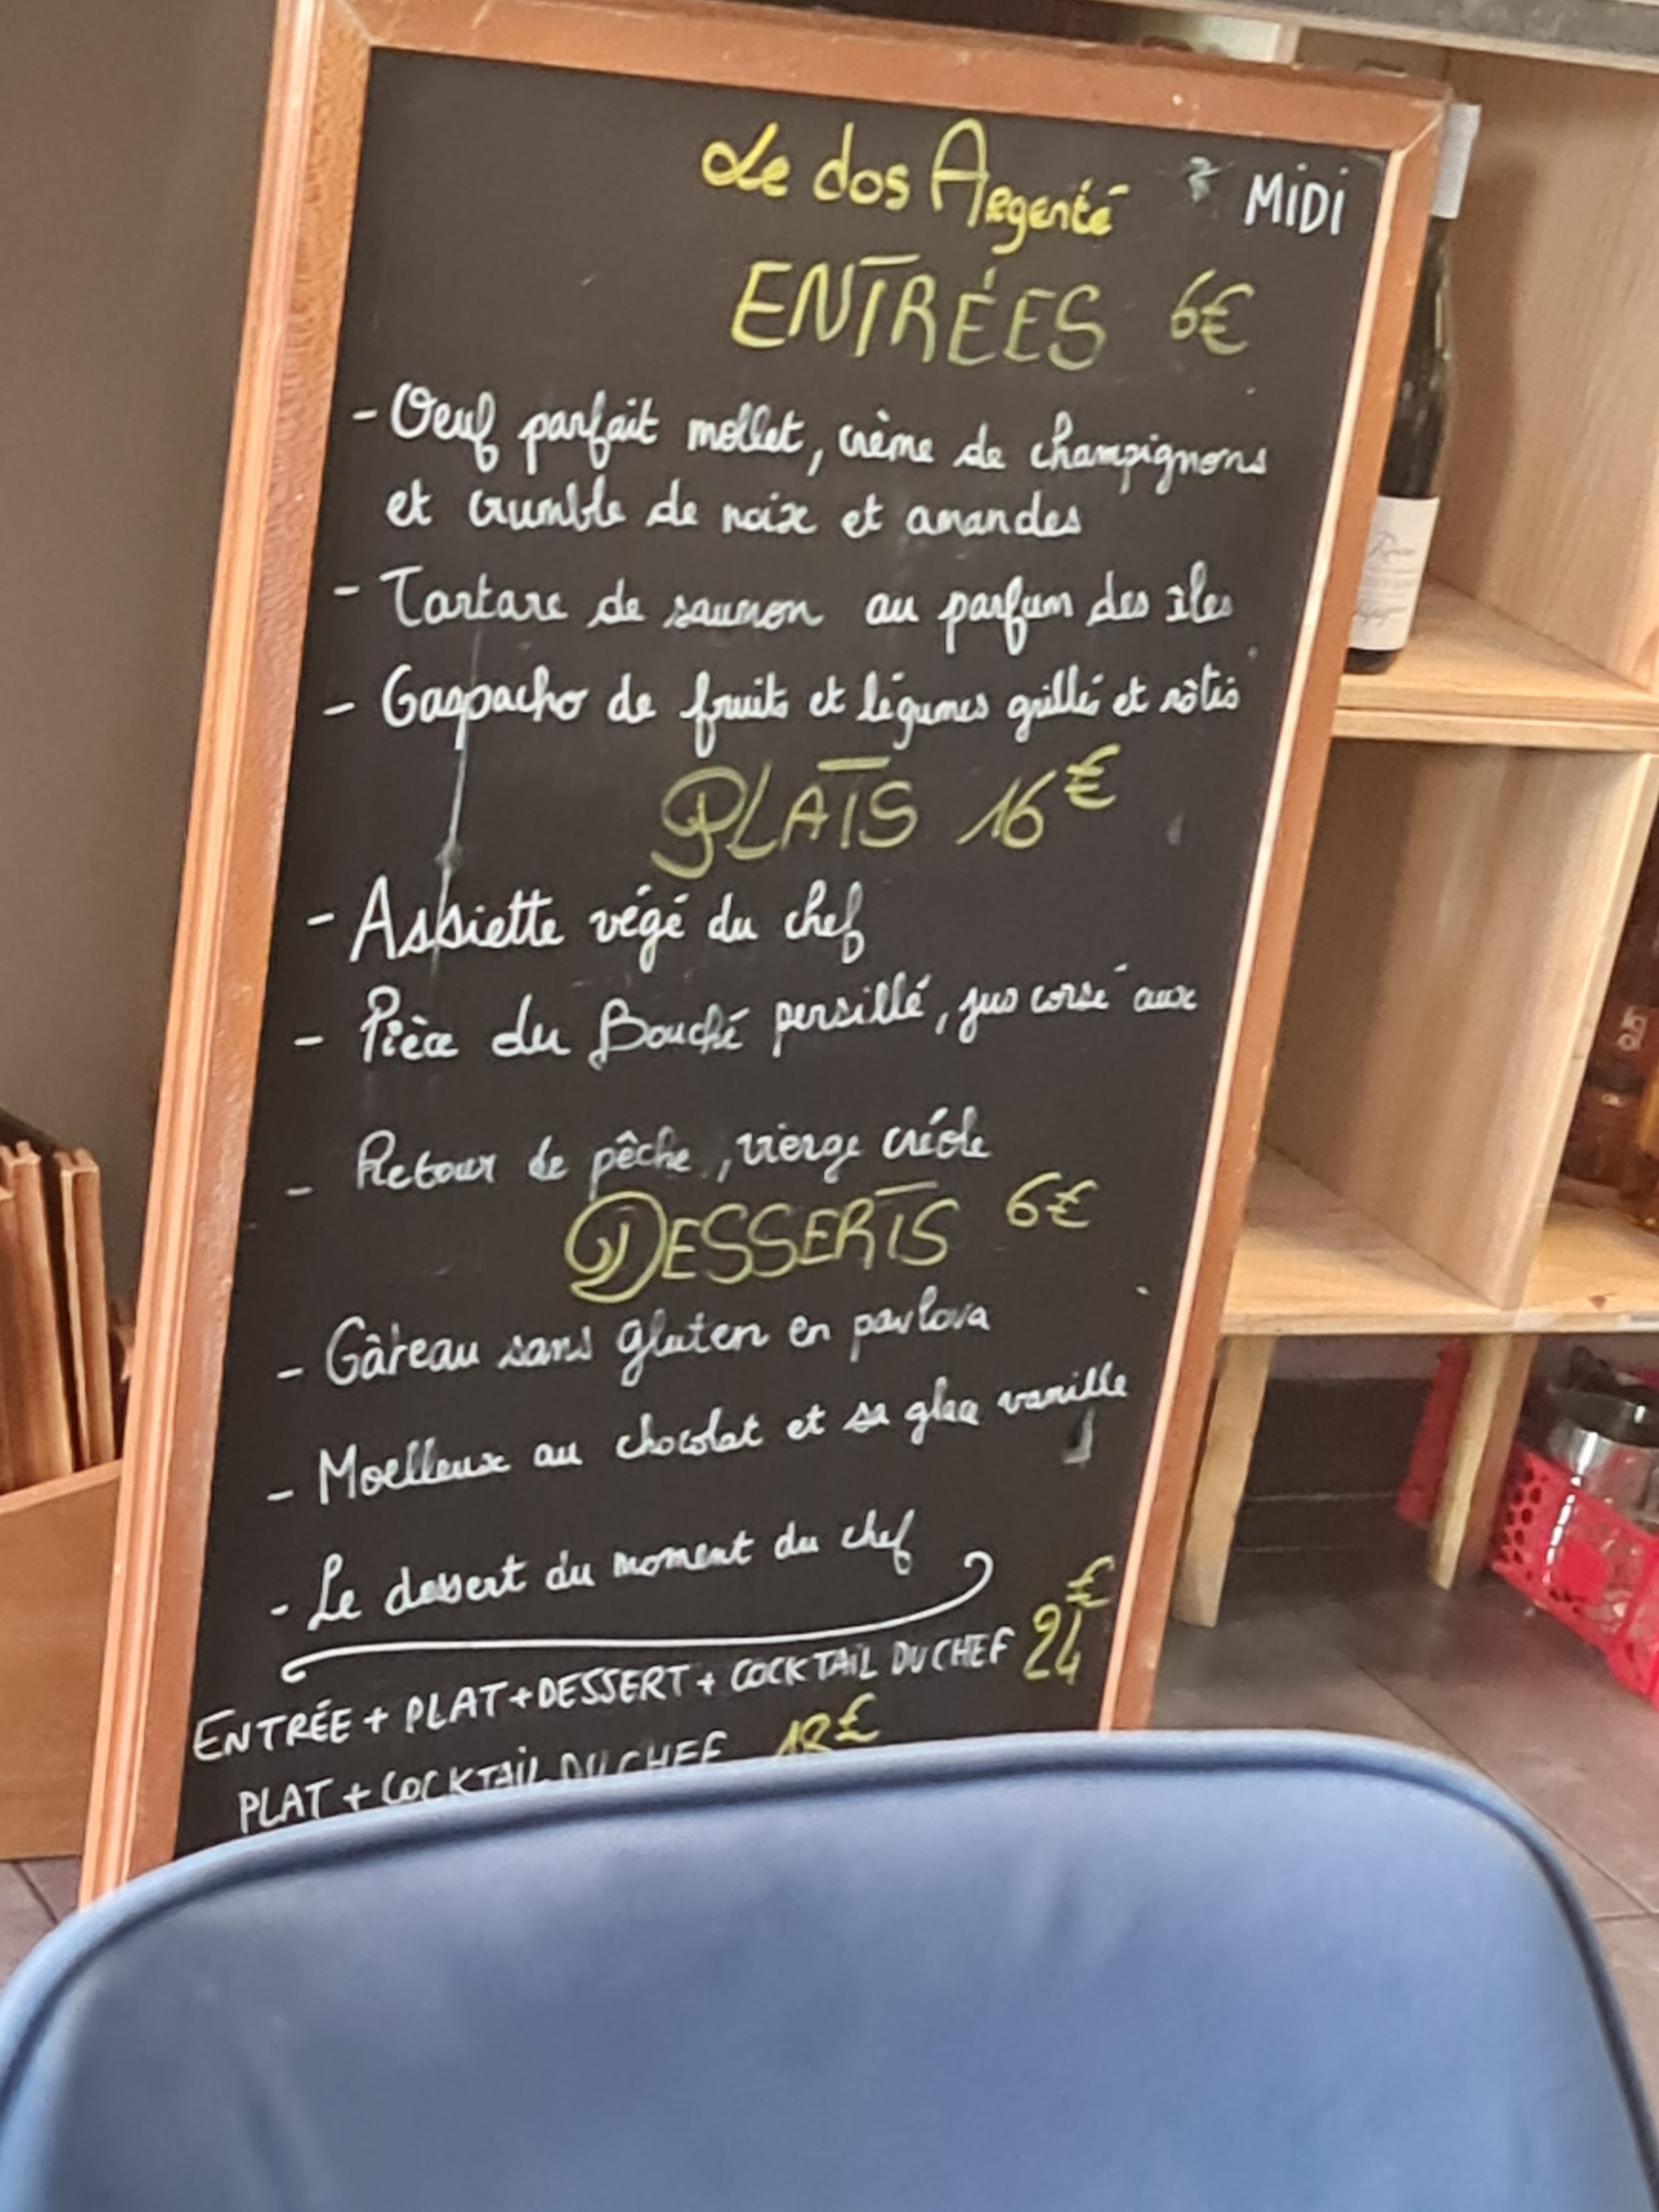 Le dos Argenté MiDi
ENTRÉES 6€
- Oeuf parfait mollet, crème de champignons
et crumble de noix et amandes
- Tartare de saumon au parfum des îles
- Gaspacho de fruits et légumes grillés et rôtis
PLATS 16€
- Assiette végé du chef
- Pièce du Bouché persillé, jus corsé aux
- Retour de pêche, vierge créole
DESSERTS 6€
- Gâteau sans gluten en pavlova
- Moelleux au chocolat et sa glace vanille
- Le dessert du moment du chef
ENTRÉE + PLAT + DESSERT + COCKTAiL DU CHEF 24€
PLAT + COCKTAiL DU CHEF 18€